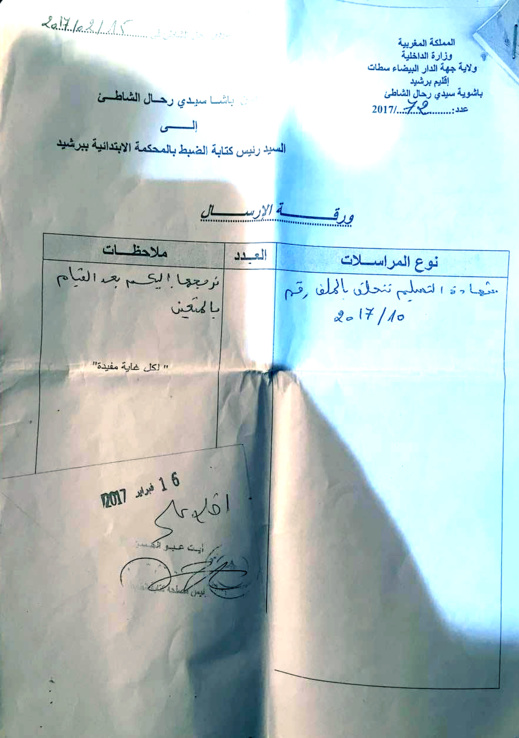 المملكة المغربية
وزارة الداخلية
ولاية جهة الدار البيضاء سطات
إقليم برشيد
باشوية سيدي رحال الشاطئ
عدد: 72 /2017
2017/02/15
باشا سيدي رحال الشاطئ
إلى
السيد رئيس كتابة الضبط بالمحكمة الابتدائية ببرشيد
ورقة الإرسال
نوع المراسلات
العدد
ملاحظات
شهادة التسليم تتعلق بالملف رقم
2017/10
نرجعها إليكم بعد القيام
بالمتعين
"لكل غاية مفيدة"
16 فبراير 2017